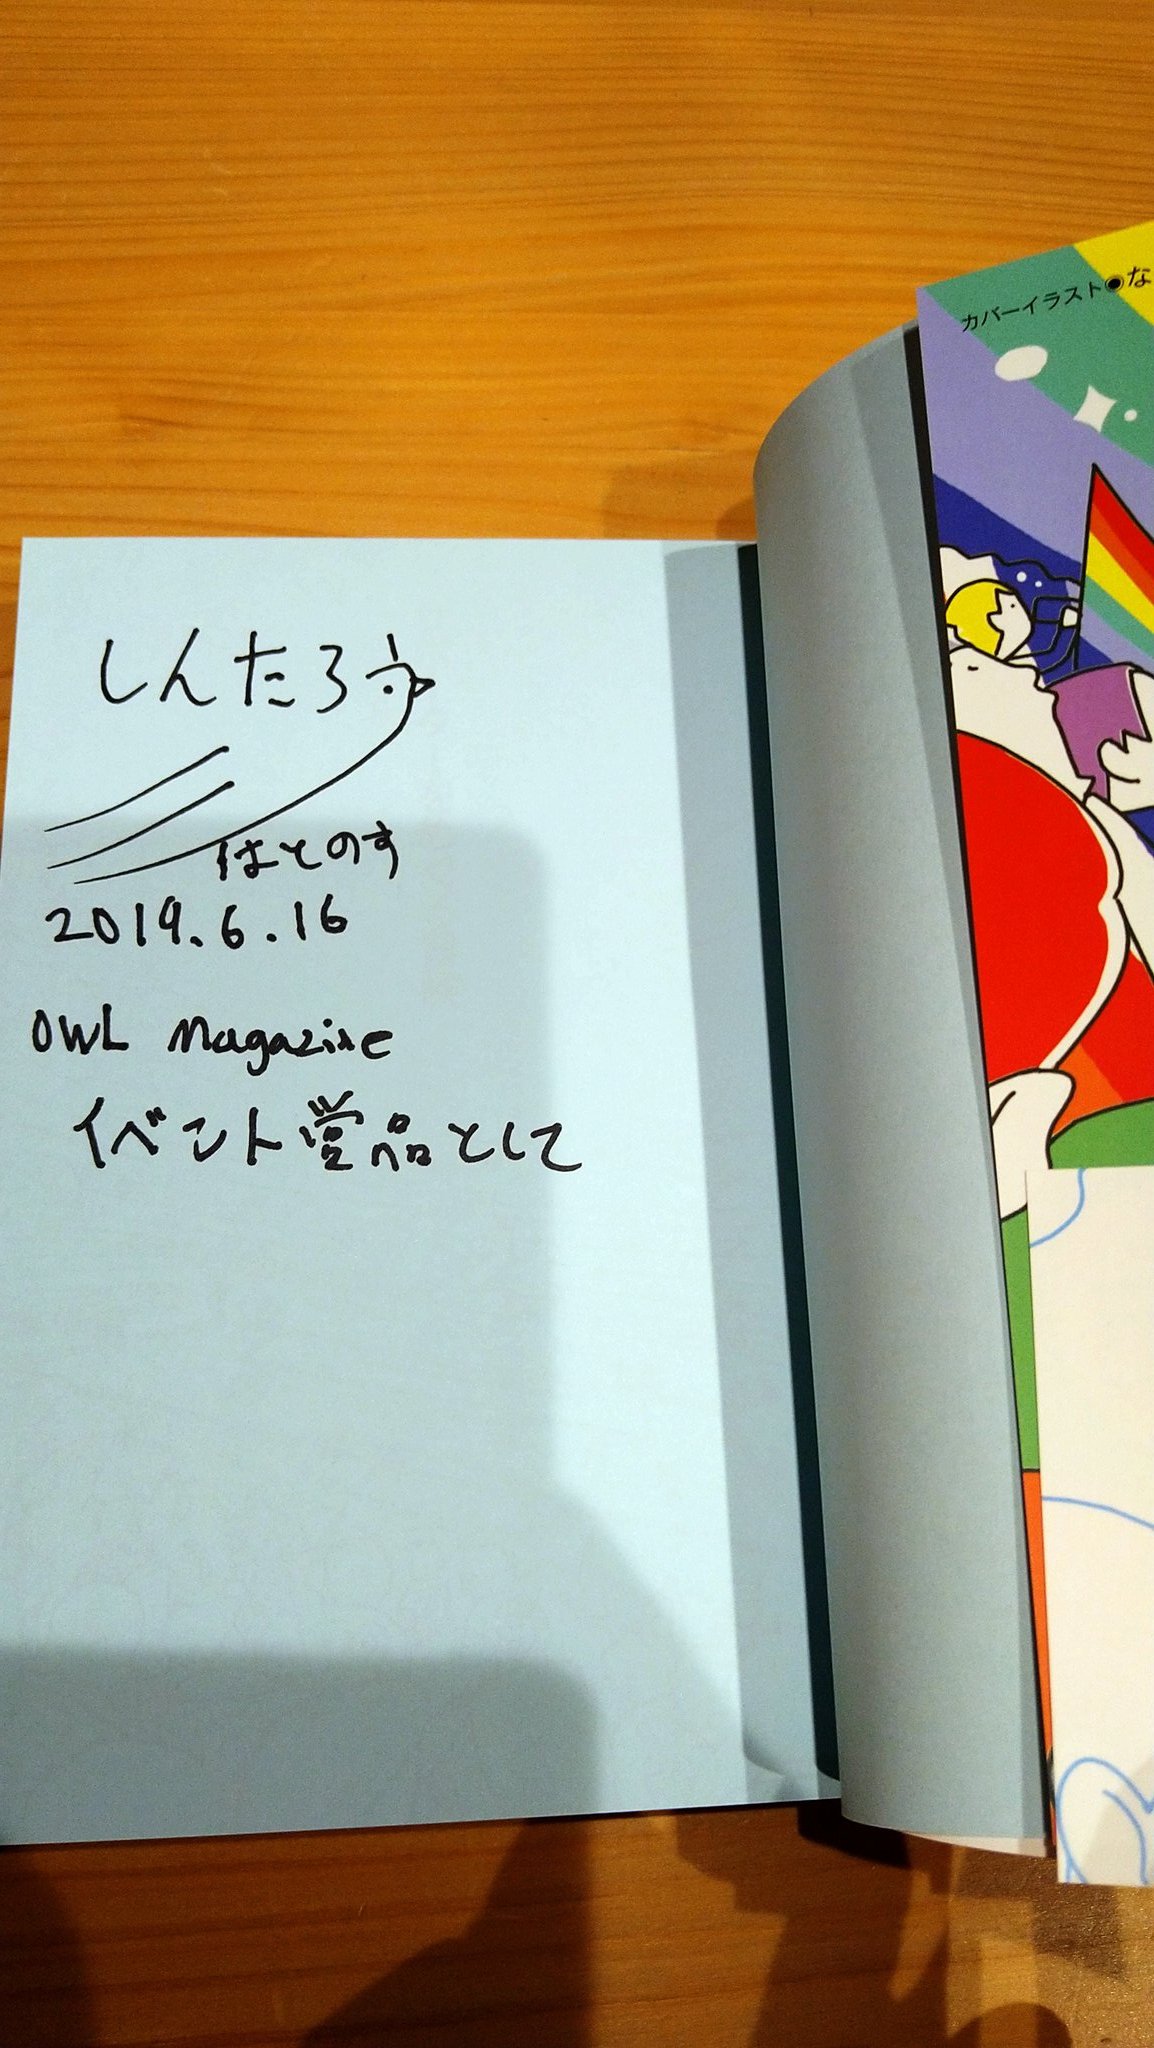 しんたろう
はとのす
2019.6.16
OWL magazine
イベント賞品として
カバーイラスト◉な